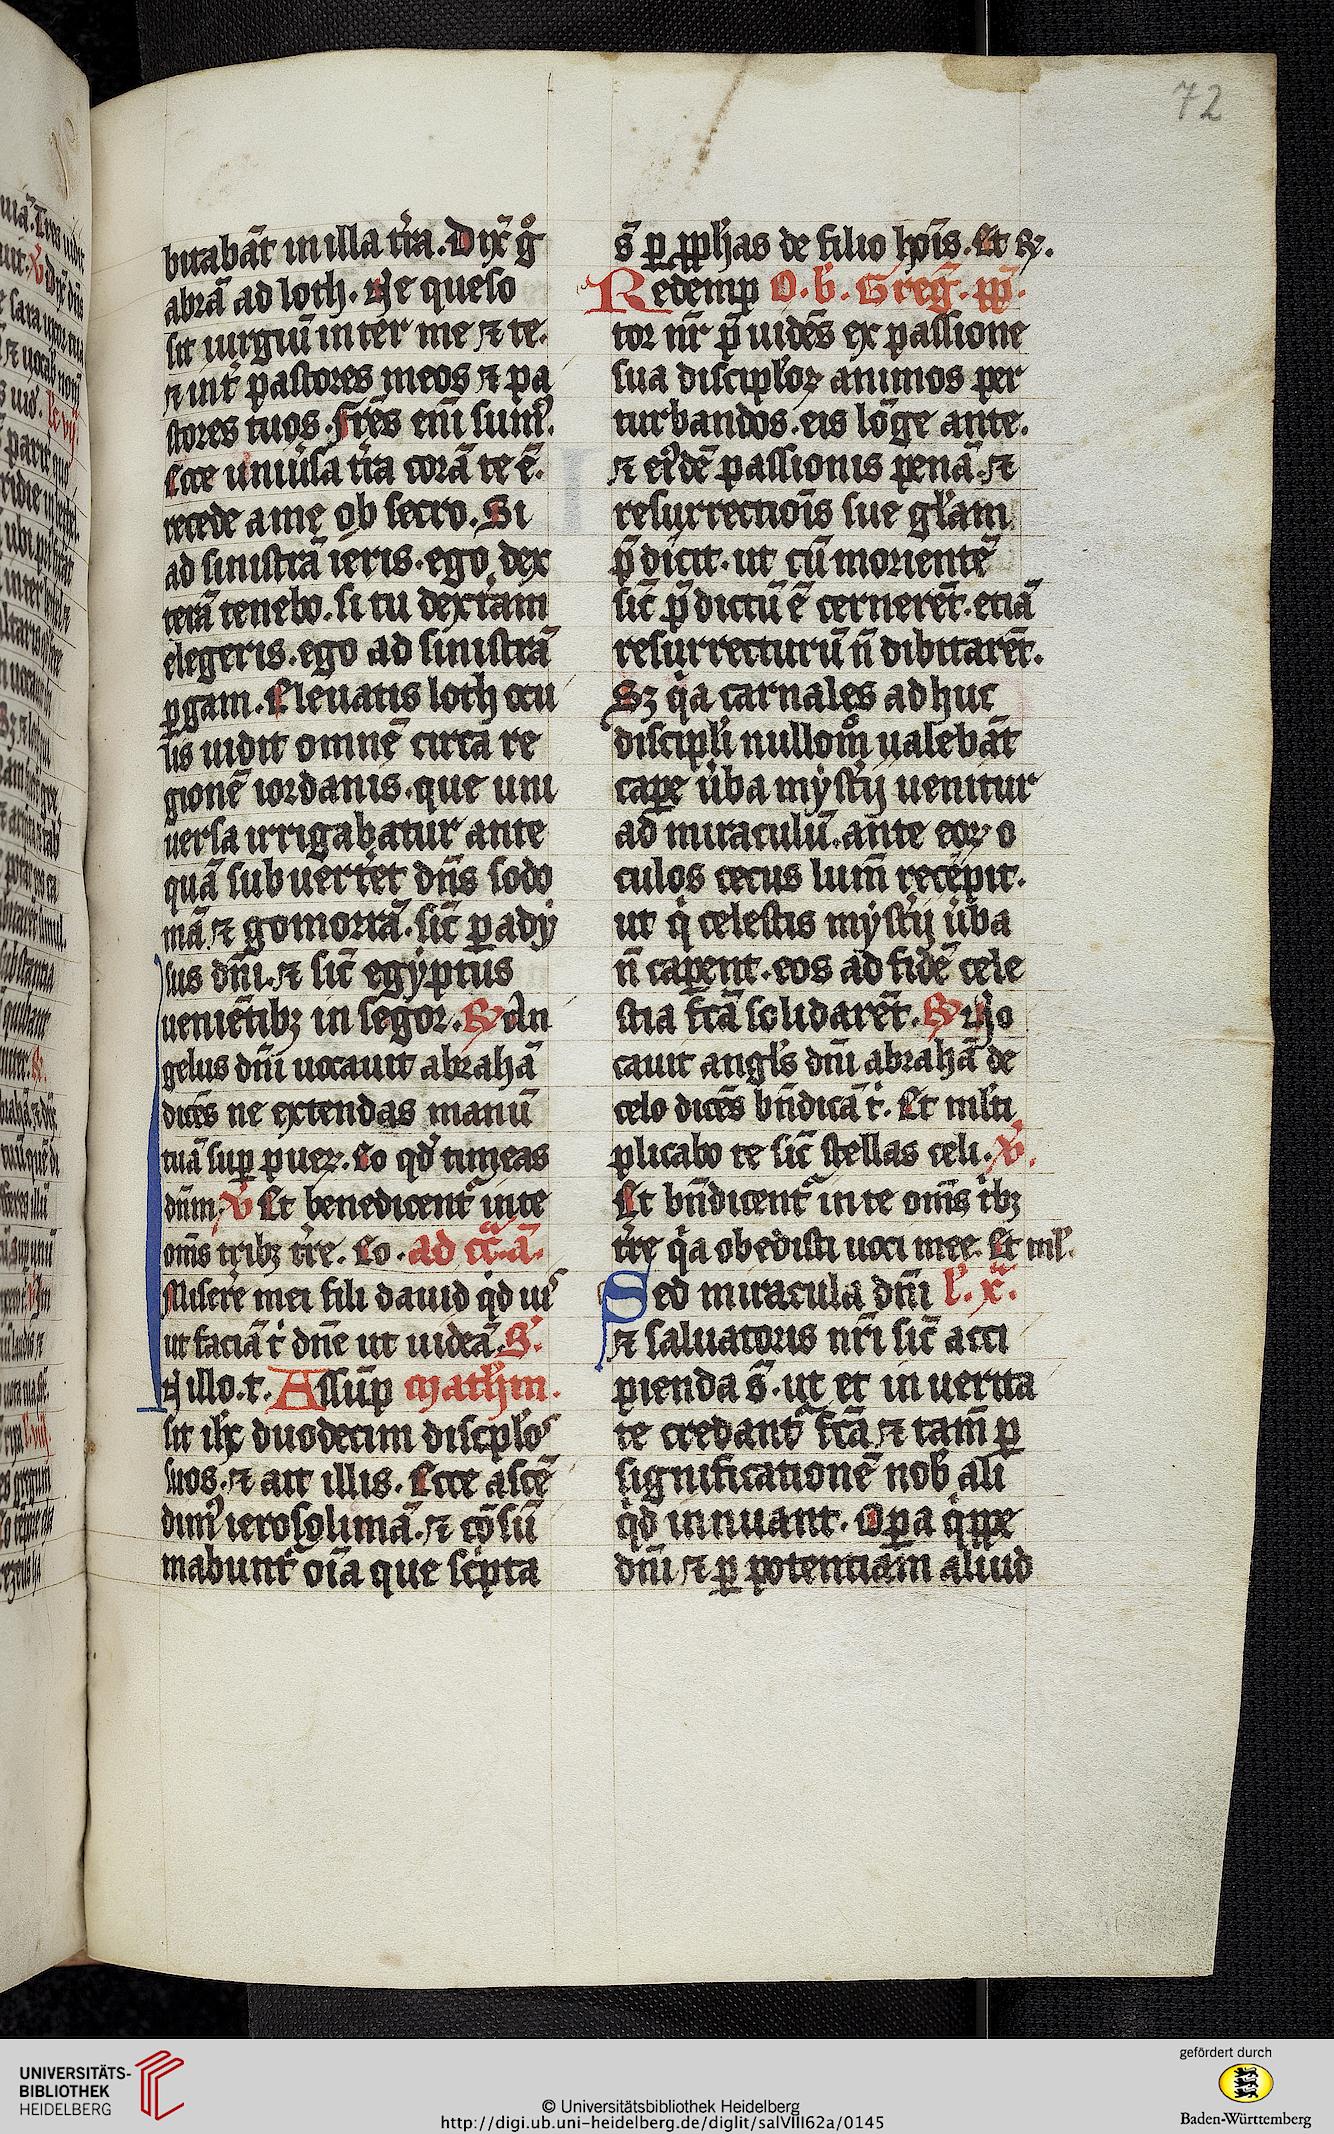 72
bitabāt in illa t̄ra. Dix̄ gͦ
abrā ad loth. Ne queso
sit iurgiū inter me ⁊ te.
⁊ int̄ pastores meos ⁊ pa
stores tuos. Fr̄es eni̅ sumꝰ.
Ecce uniūsa t̄ra corā te ē.
recede a me ob secro. Si
ad sinistrā ieris. ego dex
terā tenebo. si tu dext̄am
elegeris. ego ad sinistrā
ꝑgam. Eleuatis loth ocu
lis uidit omnē circa re
gionē iordanis. que uni
uersa irrigabatur ante
quā sub uert̄et dn̄s sodo
mā ⁊ gomorrā. sic̄ paradẏ
sus dn̄i. ⁊ sic̄ egẏptus
ueniētibꝫ in segor. ℟ An
gelus dn̄i uocauit abrahā
dicēs ne extendas manū
tuā suꝑ pueꝝ. Eo qd̓ timeas
dn̄m. ℣ Et benedicent᷑ in te
om̄s tribꝫ t̄re. Eo. ad cc̄. a͞.
Misere mei fili dauid qͥd uiˢ
ut faciā t̓ dn̄e ut uideā. S᷑.
In illo. t. Assūp Math̄m.
sit ih̄c duodecim discip̄loˢ
suos. ⁊ ait illis. Ecce ascē
dimꝰ ierosolimā. ⁊ cōsū
mabunt᷑ oīa que sc̓pta
s̄ ꝑ ꝓph̄as de filio hoīs. Et ꝶ.
Redemp O. b̓. Greḡ. pp̄.
tor nr̄ p̄ uidēs ex passione
sua discip̄loꝝ animos per
turbandos. eis lōge ante.
⁊ eiꝰdē passionis penā. ⁊
resurrectiōis sue gl̄am
p̄ dicit. ut cū morientē
sic̄ p̄ dictū ē cernerēt. etiā
resurrecturū n̄ dibitarēt.
Sꝫ qͥa carnales ad huc
discipl̓i nulloͫ ualebāt
caꝑe ūba mẏst̓ij uenitur
ad miraculū. ante eoꝝ o
culos cecus lum̄ recepit.
ut qͥ celestis mẏst̓ij ūba
n̄ caꝑent. eos ad fidē cele
stia fc̄a solidarēt. ℟ Uo
cauit angl̓s dn̄i abrahā de
celo dicēs bn̄dicā t̓. Et ml̓ti
plicabo te sic̄ stellas celi. ℣.
Et bn̄dicent᷑ in te om̄s t̓bꝫ
t̄re qͥa obedisti uoci mee. Et ml̓.
Sed miracula dn̄i l̓. x͞.
⁊ saluatoris nr̄i sic̄ acci
pienda s̄. ut et in uerita
te credant᷑ fc̄a ⁊ tam̄ ꝑ
significationē nob̄ ali
qͥd innuant. Oꝑa qͥppe
dn̄i ⁊ ꝑ potentiam aliud
UNIVERSITÄTS-
BIBLIOTHEK
HEIDELBERG
© Universitätsbibliothek Heidelberg
http://digi.ub.uni-heidelberg.de/diglit/salVIII62a/0145
gefördert durch
Baden-Württemberg